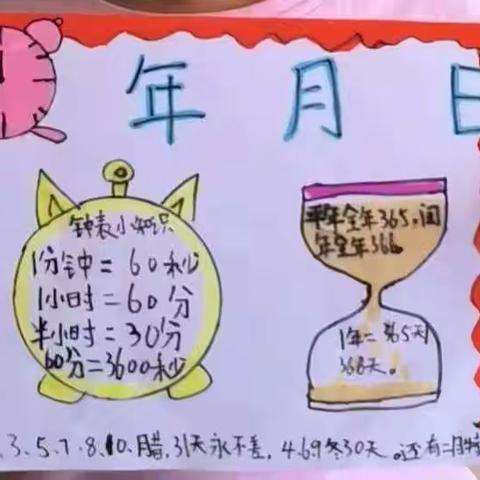 年 月 日
钟表小知识
1分钟=60秒
1小时=60分
半小时=30分
60分=3600秒
平年全年365,闰
年全年366
1年=365天
366天。
3.5.7.8.10、腊,31天永不差,4.6.9冬30天。还有二月特